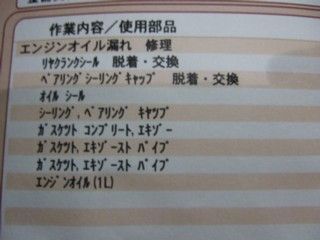 作業内容／使用部品
エンジンオイル漏れ 修理
ﾘﾔｸﾗﾝｸｼｰﾙ 脱着・交換
ﾍﾞｱﾘﾝｸﾞｼｰﾘﾝｸﾞｷｬｯﾌﾟ 脱着・交換
ｵｲﾙ ｼｰﾙ
ｼｰﾘﾝｸﾞ,ﾍﾞｱﾘﾝｸﾞ ｷﾔﾂﾌﾟ
ｶﾞｽｹﾂﾄ ｺﾝﾌﾟﾘｰﾄ,ｴｷｿﾞｰ
ｶﾞｽｹﾂﾄ,ｴｷｿﾞｰｽﾄ ﾊﾟｲﾌﾟ
ｶﾞｽｹﾂﾄ,ｴｷｿﾞｰｽﾄ ﾊﾟｲﾌﾟ
ｴﾝｼﾞﾝｵｲﾙ(1L)